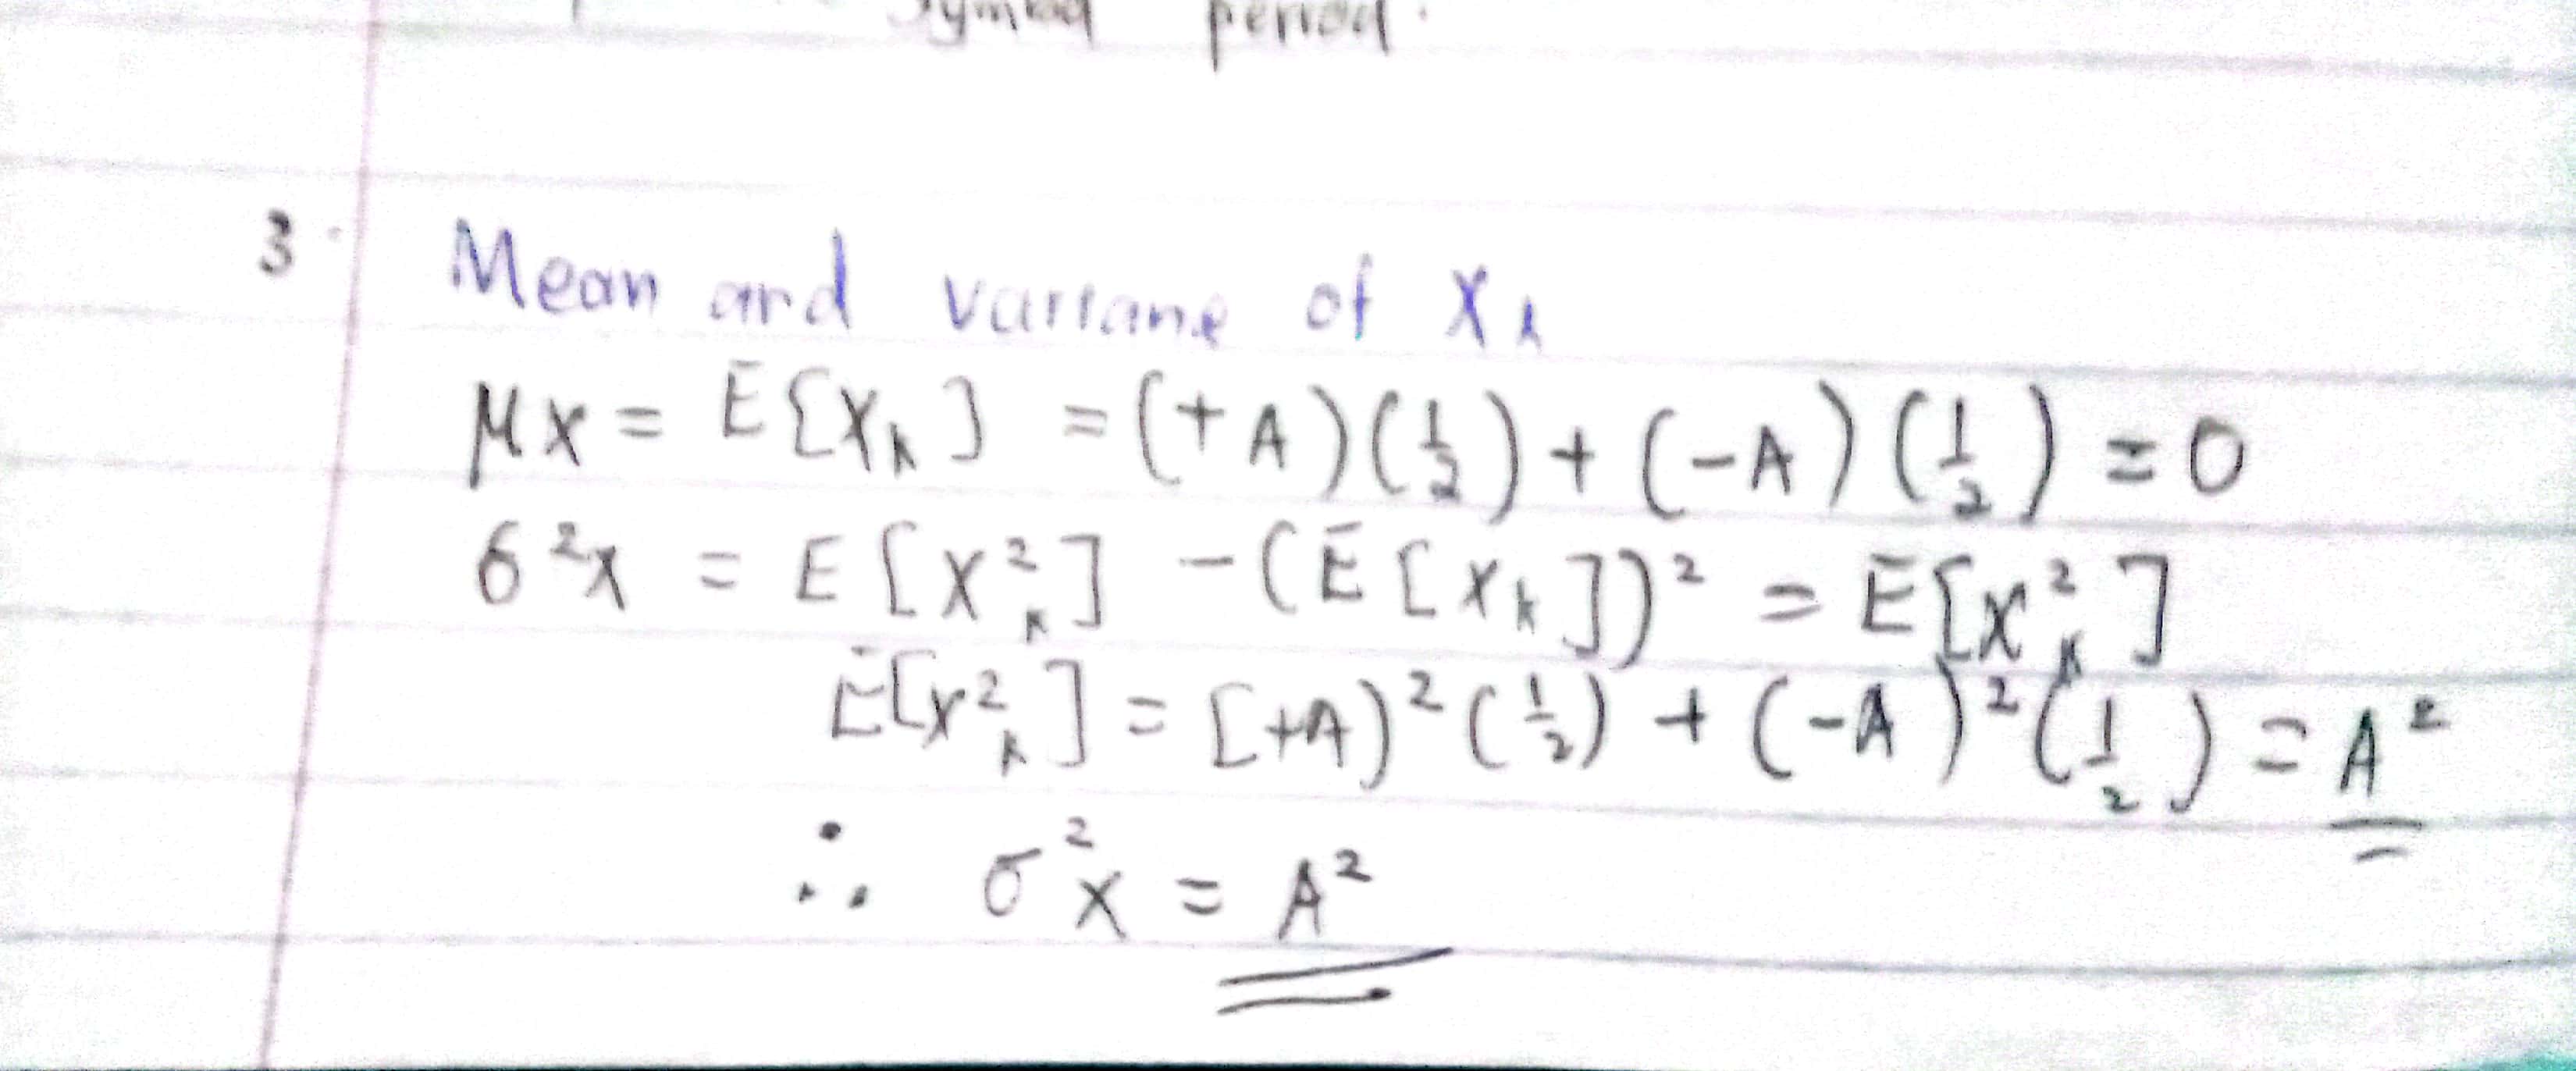 symbol period.
3. Mean and variane of Xk
μx = E[Xk] = (+A)(1/2) + (-A)(1/2) = 0
σ²x = E[X²k] - (E[Xk])² = E[X²k]
E[X²k] = [+A)²(1/2) + (-A)²(1/2) = A²
∴ σ²x = A²